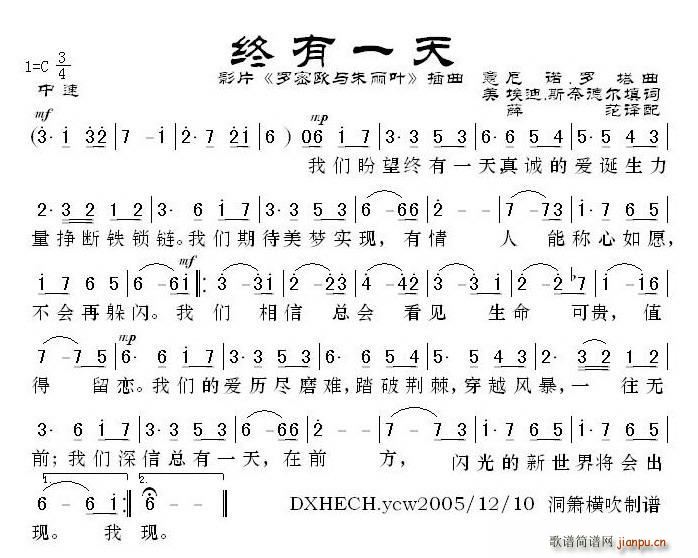 终有一天
1=C 3/4
影片《罗密欧与朱丽叶》插曲
意 尼 诺.罗 塔 曲
美 埃迪.斯奈德尔填词
薛 范译配
中速
mf mp
(3· 1 32 | 7 - 1 | 2· 7 21 | 6 - ) | 06 1 7 | 6· 1 7 | 3· 5 3 | 5· 4 3 |
我们盼望终有一天真诚的爱诞生力
2· 3 2 | 1 - 02 | 3· 5 3 | 6 - 66 | 2 - | 7 - 73 | 1· 7 6 | 7 6 5 |
量挣断铁锁链。我们期待美梦实现,有情 人 能称心如愿,
mf
1 7 6 5 | 6 - 6 | 6 - 61 :
不会再躲闪。我 们 相信 总会 看见 生命 可贵,值
mp
7 - 7 5 | 6· 6 | 6· 1 7 | 6· 1 7 | 3· 5 3 | 5· 4 3 | 2· 3 2 | 1 2
得 留恋。我们的爱历尽磨难,踏破荆棘,穿越风暴,一 往无
3· 6 | 3· 5 3
前;我们深信总有一天,在前 方, 闪光的新世界将会出
1. 2.
6 - | 6 - 6 1 : 6 - | 6 -
现。 我 现。
DXHECH.ycw2005/12/10 洞箫横吹制谱
歌谱简谱网
jianpu.cn